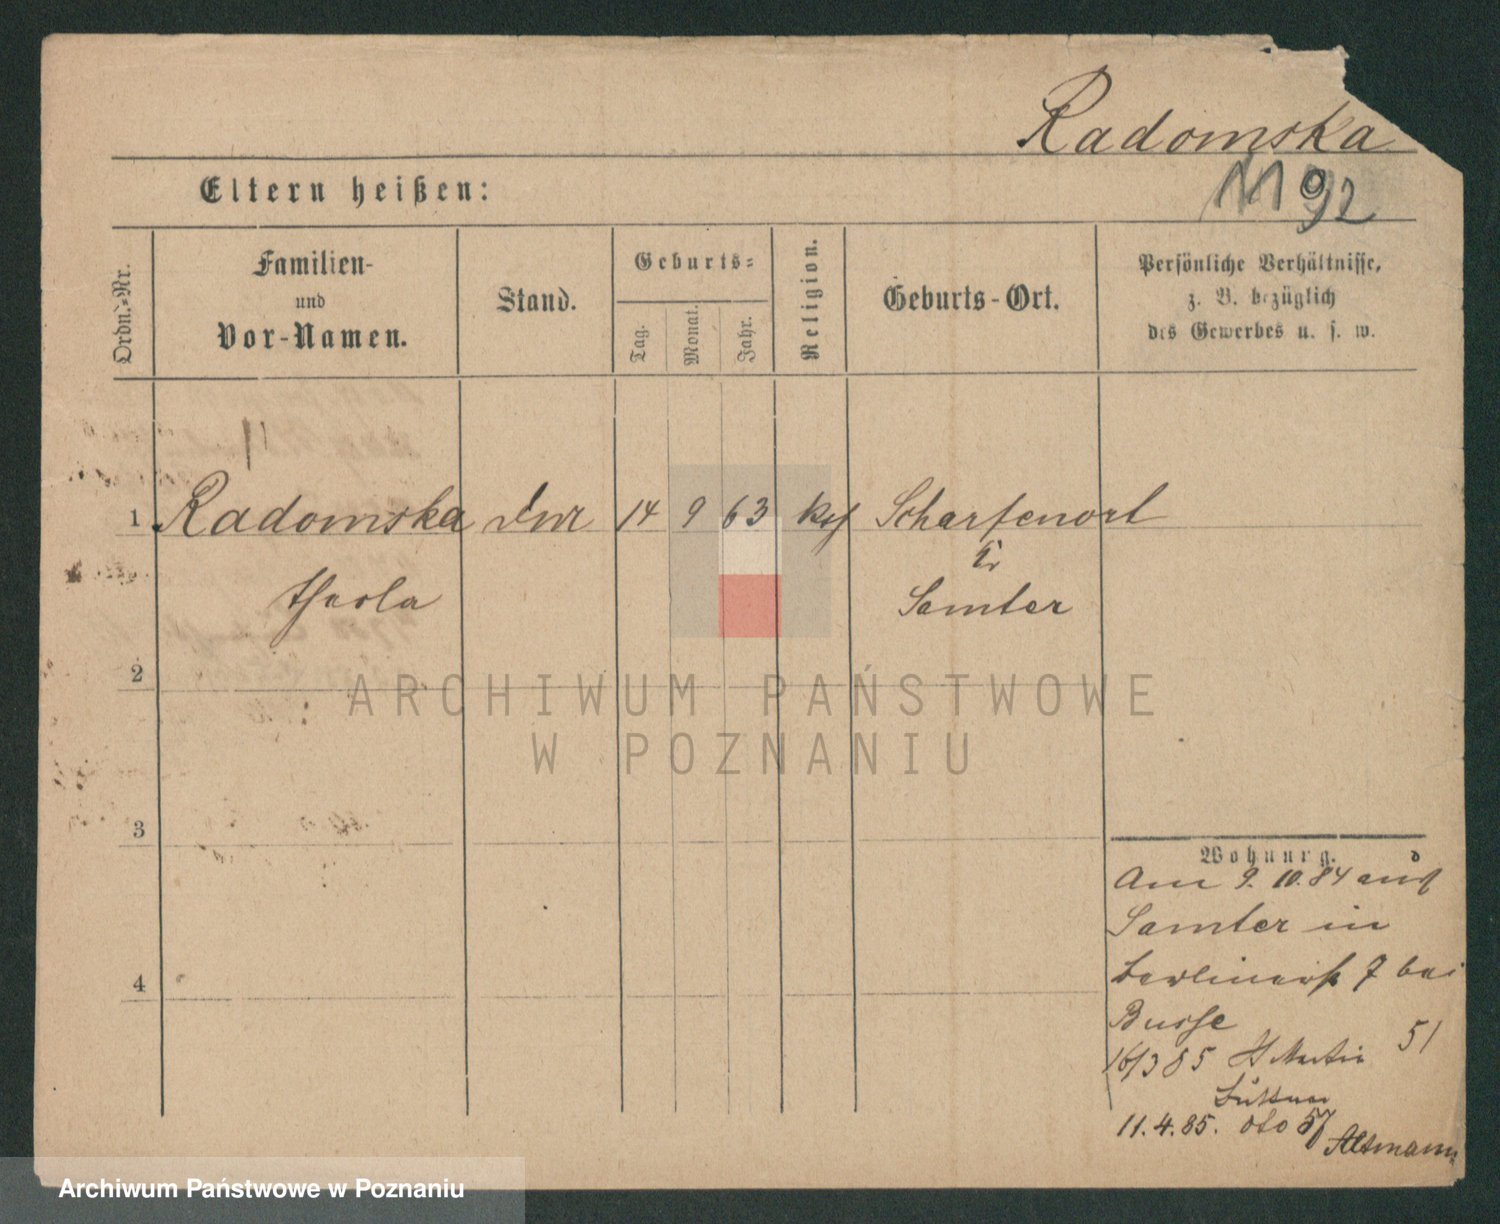 Radomska
1192
Eltern heißen:
Ordn.-Nr.
Familien-
und
Vor-Namen.
Stand.
Geburts-
Tag.
Monat.
Jahr.
Religion.
Geburts-Ort.
Persönliche Verhältnisse,
z. B. bezüglich
des Gewerbes u. s. w.
1 Radomska 14 9 63 Scharfenort
Samter
2
ARCHIWUM PAŃSTWOWE
W POZNANIU
3
Wohnung.
Am 9. 10. 84 aus
Samter in
Berlinerstr 7 bei
4
Busse
16/3 85 St Martin 51
11.4.85. dto 57 Altmann
Archiwum Państwowe w Poznaniu